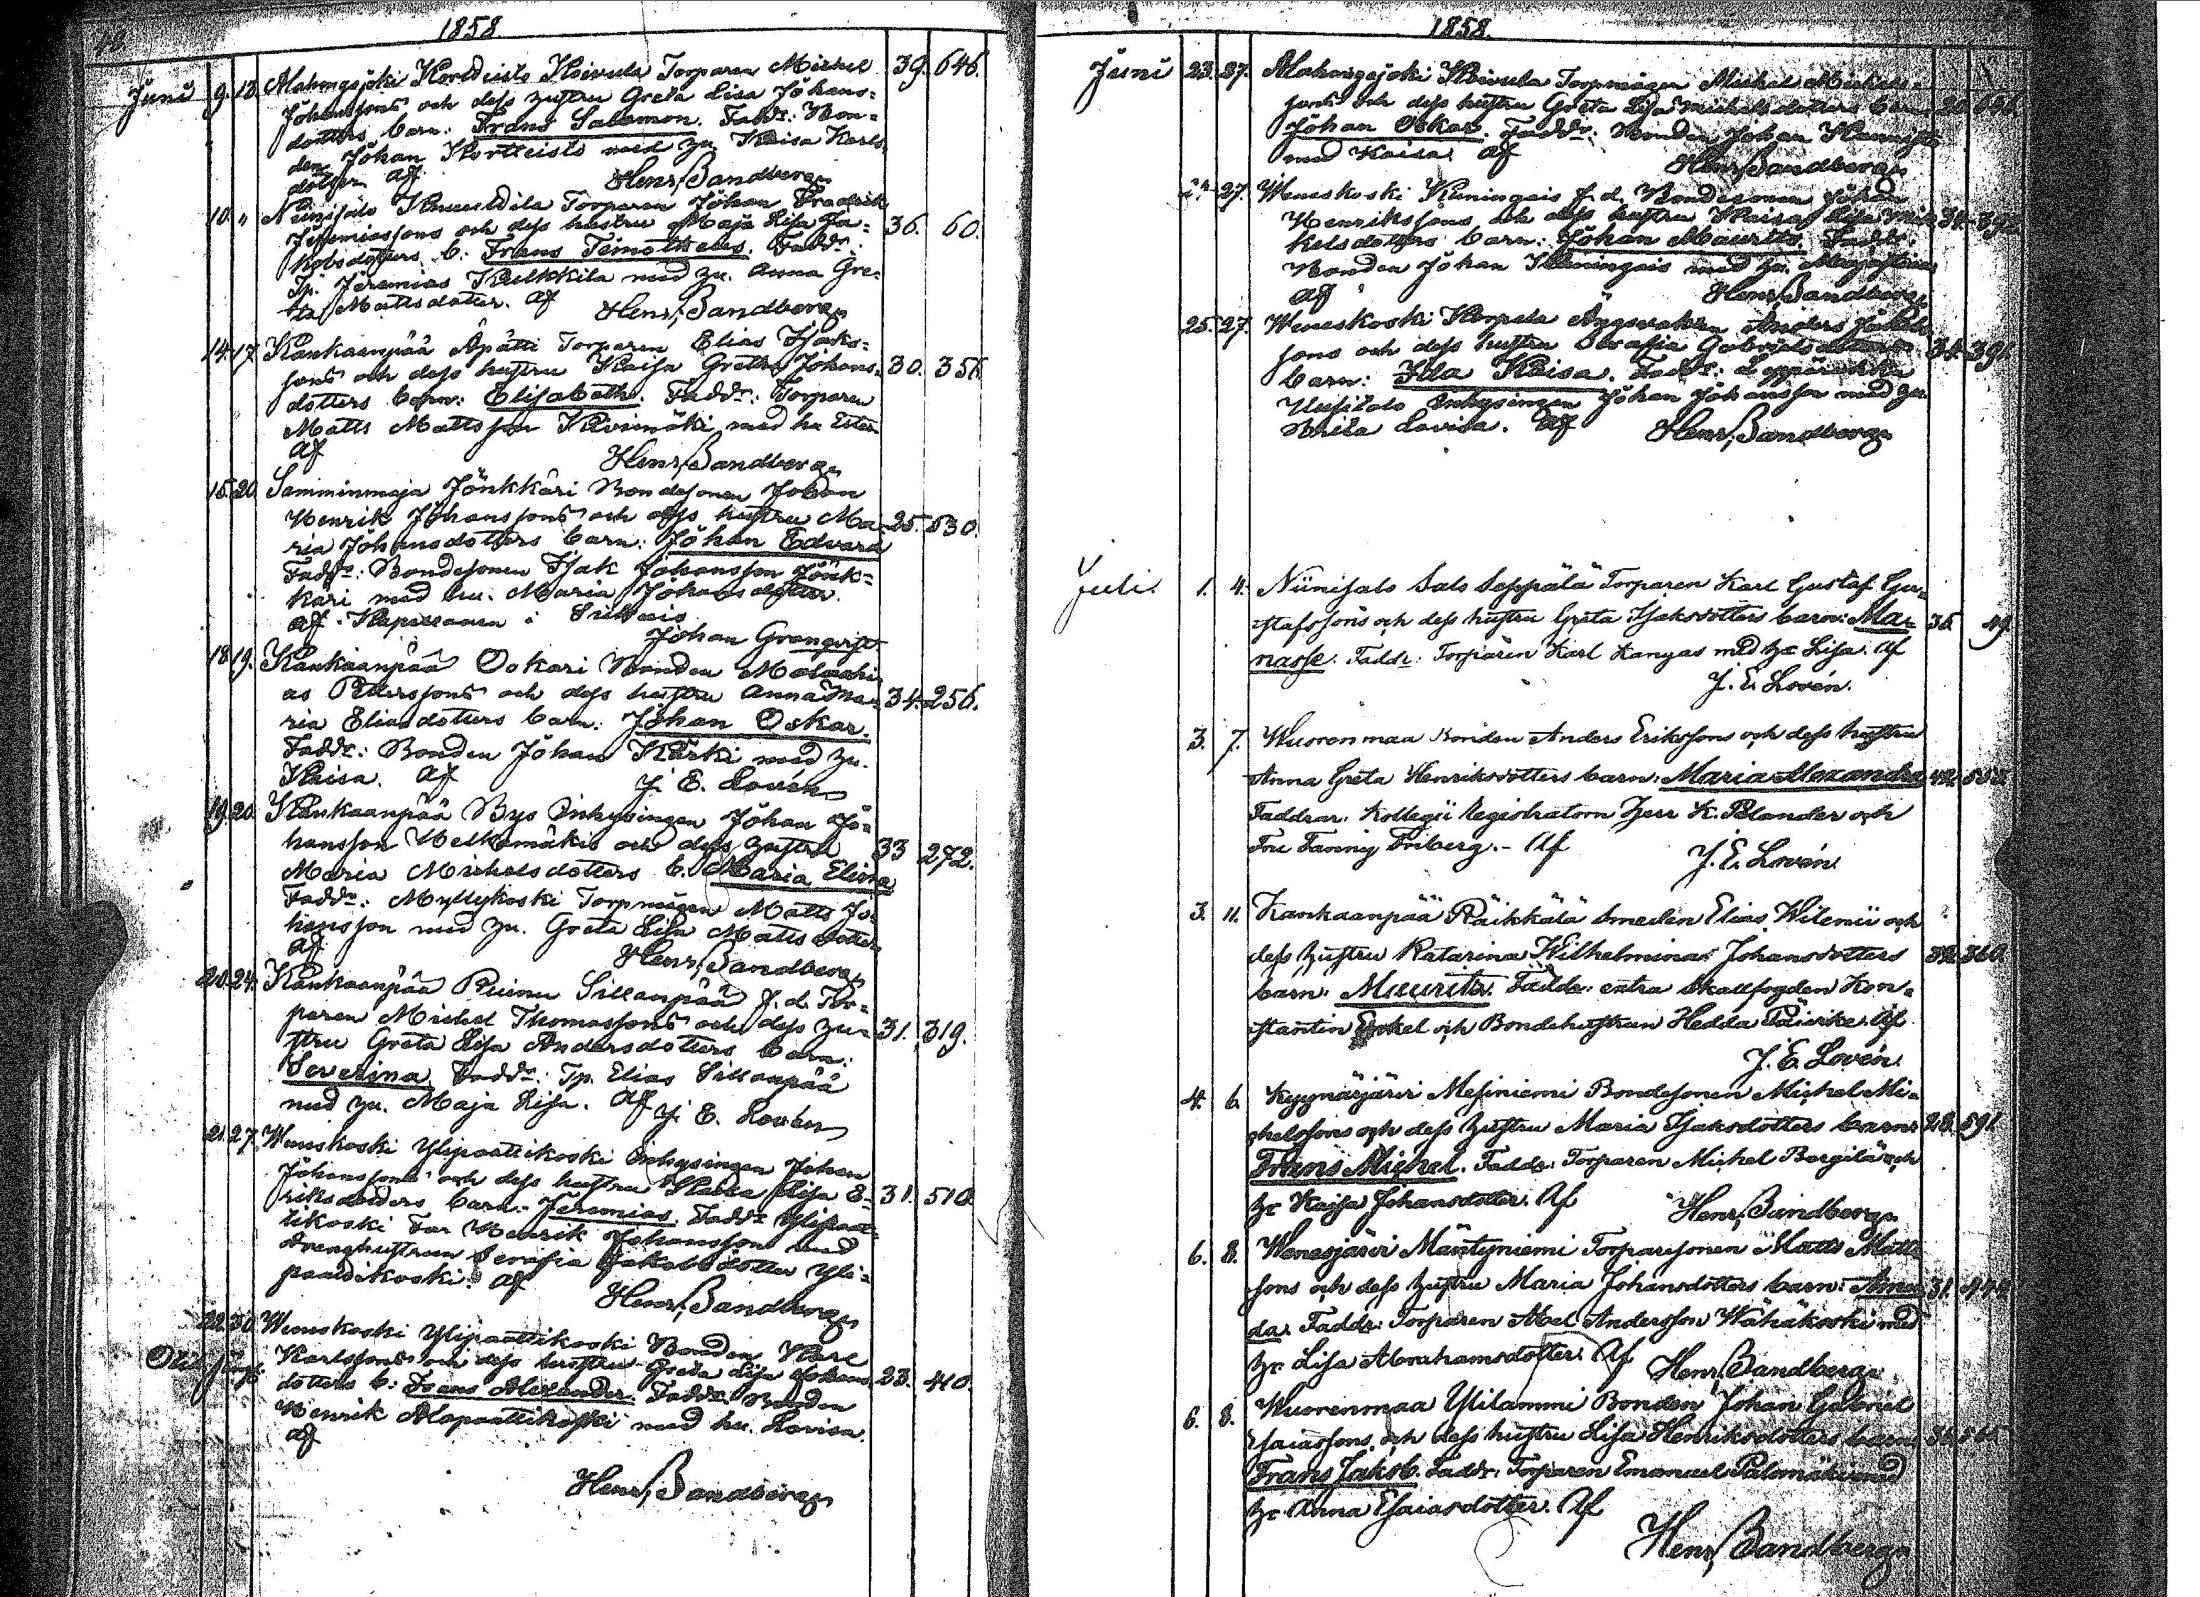 1858
Juni 9. 13. Alahongsjoki Kortteisto Koivula Torparen Michel 39. 646.
Johanssons och dess hustru Greta Lisa Johans=
dotters barn: Frans Salomon. Faddr: Bon=
den Johan Kortteisto med hu Kaisa Karls
dotter. Af
Henr. Sandberg
10. " Niinisalo Torparen Johan Fredrik
Jeremiassons och dess hustru Maja Lisa Ja= 36. 60.
kobsdotters b: Frans Timotheus. Faddr:
Tp. Jeremias Kulkkila med hu. Anna Gre=
ta Mattsdotter. Af
Henr. Sandberg
14. 17. Kankaanpää Äpätti Torparen Elias Isaks=
sons och dess hustru Kaisa Greta Johans= 30. 356.
dotters barn: Elisabeth. Faddr: Torparen
Matts Mattsson med hu Ester
Af
Henr. Sandberg
15. 20. Samminmaja Jönkkäri Bondesonen Johan
Henrik Johanssons och dess hustru Ma= 25. 530.
ria Johansdotters barn: Johan Edvard
Faddr: Bondesonen Isak Johansson Jönk=
käri med hu. Maria Johansdotter.
Af Kapellanen i
Johan Granqvist
18. 19. Kankaanpää Ookari Bonden Malachi
as Petterssons och dess hustru Anna Ma= 34. 256.
ria Eliasdotters barn: Johan Oskar.
Faddr: Bonden Johan Kärki med hu.
Kaisa. Af J. E. Lovén
19. 20. Kankaanpää Bys Inhysingen Johan Jo=
hansson Melkomäkis och dess hustru 33 272.
Maria Michelsdotters b. Maria Elina
Faddr: Myllykoski Torpmågen Matts Jo=
hansson med hu. Greta Lisa Mattsdotter
Af
Henr. Sandberg
20. 24. Kankaanpää Ruinu Sillanpää f.d. Tor=
paren Michel Thomassons och dess hu= 31. 319.
stru Greta Lisa Andersdotters barn:
Severina. Faddr: Tp. Elias Sillanpää
med hu. Maja Lisa. Af J. E. Lovén
21. 27. Weneskoski Ylipaattikoski Inhysingen Johan
Johanssons och dess hustru Lisa E= 31. 510.
riksdotters barn: Jeremias. Faddr Ylipaat=
tikoski Far Henrik Johansson med
Drenghustrun Serafia Jakobsdotter Yli=
paattikoski. Af
Henr. Sandberg
22. 30. Weneskoski Ylipaattikoski Bonden Karl
Karlssons och dess hustru Greta Lisa Johans 23. 410.
dotters b: Frans Alexander. Faddr: Bonden
Henrik Alapaattikoski med hu. Lovisa.
Af
Henr. Sandberg
1858.
Juni 23. 27. Alahongsjoki Koivula Torpmågen Michel Michels=
sons och dess hustru Greta Lisa Michelsdotters barn
Johan Oskar. Faddr: Bonden Johan
med Kaisa. Af Henr. Sandberg
27. Weneskoski Kuningais f.d. Bondesonen Johan
Henrikssons och dess hustru Kaisa Lisa Mic 34. 392.
kelsdotters barn: Johan Maurits. Faddr:
Bonden Johan Kuningais med hu.
Af Henr. Sandberg
25. 27. Weneskoski Korpela Anders
sons och dess hustru Serafia Gabrielsdotters 34. 391.
barn: Ida Kaisa. Faddr:
Uusitalo Inhysingen Johan Johansson med hu.
Brita Lovisa. Af Henr. Sandberg
Juli. 1. 4. Niinisalo Salo Seppälä Torparen Karl Gustaf Gu=
stafssons och dess hustru Greta Isaksdotters barn: Ma= 35. 49.
nasse. Faddr: Torparen Karl Kangas med hu Lisa. Af
J. E. Lovén.
3. 7. Wuorenmaa Bonden Anders Erikssons och dess hustru
Anna Greta Henriksdotters barn: Maria Alexandra
Faddrar: Kollegii Registratorn Herr K. Polander och
Fru Fanny Friberg.- Af J. E. Lovén.
3. 11. Kankaanpää Räikkälä Smeden Elias Wilenii och
dess hustru Katarina Wilhelminas Johansdotters 32. 360.
barn: Maurits. Faddr: extra Skallfogden Kon=
stantin Enkel och Bondehustrun Hedda Päivike. Af
J. E. Lovén.
4. 6. Kyynärjärvi Mesiniemi Bondesonen Michel Mi=
chelssons och dess hustru Maria Isaksdotters barn: 28. 591.
Frans Michel. Faddr: Torparen Michel Bergilä och
hr Kaisa Johansdotter. Af Henr. Sandberg
6. 8. Wenesjärvi Mäntyniemi Torparesonen Matts Matts
sons och dess hustru Maria Johansdotters barn: Aman 31.
da. Faddr: Torparen Abel Andersson Wähäkoski med
hr Lisa Abrahamsdotter. Af Henr. Sandberg
6. 8. Wuorenmaa Ylilammi Bonden Johan Gabriel
Esaiassons och dess hustru Lisa Henriksdotters barn
Frans Jakob. Faddr: Torparen Emanuel Palomäki med
hr Anna Esaiasdotter. Af
Henr. Sandberg